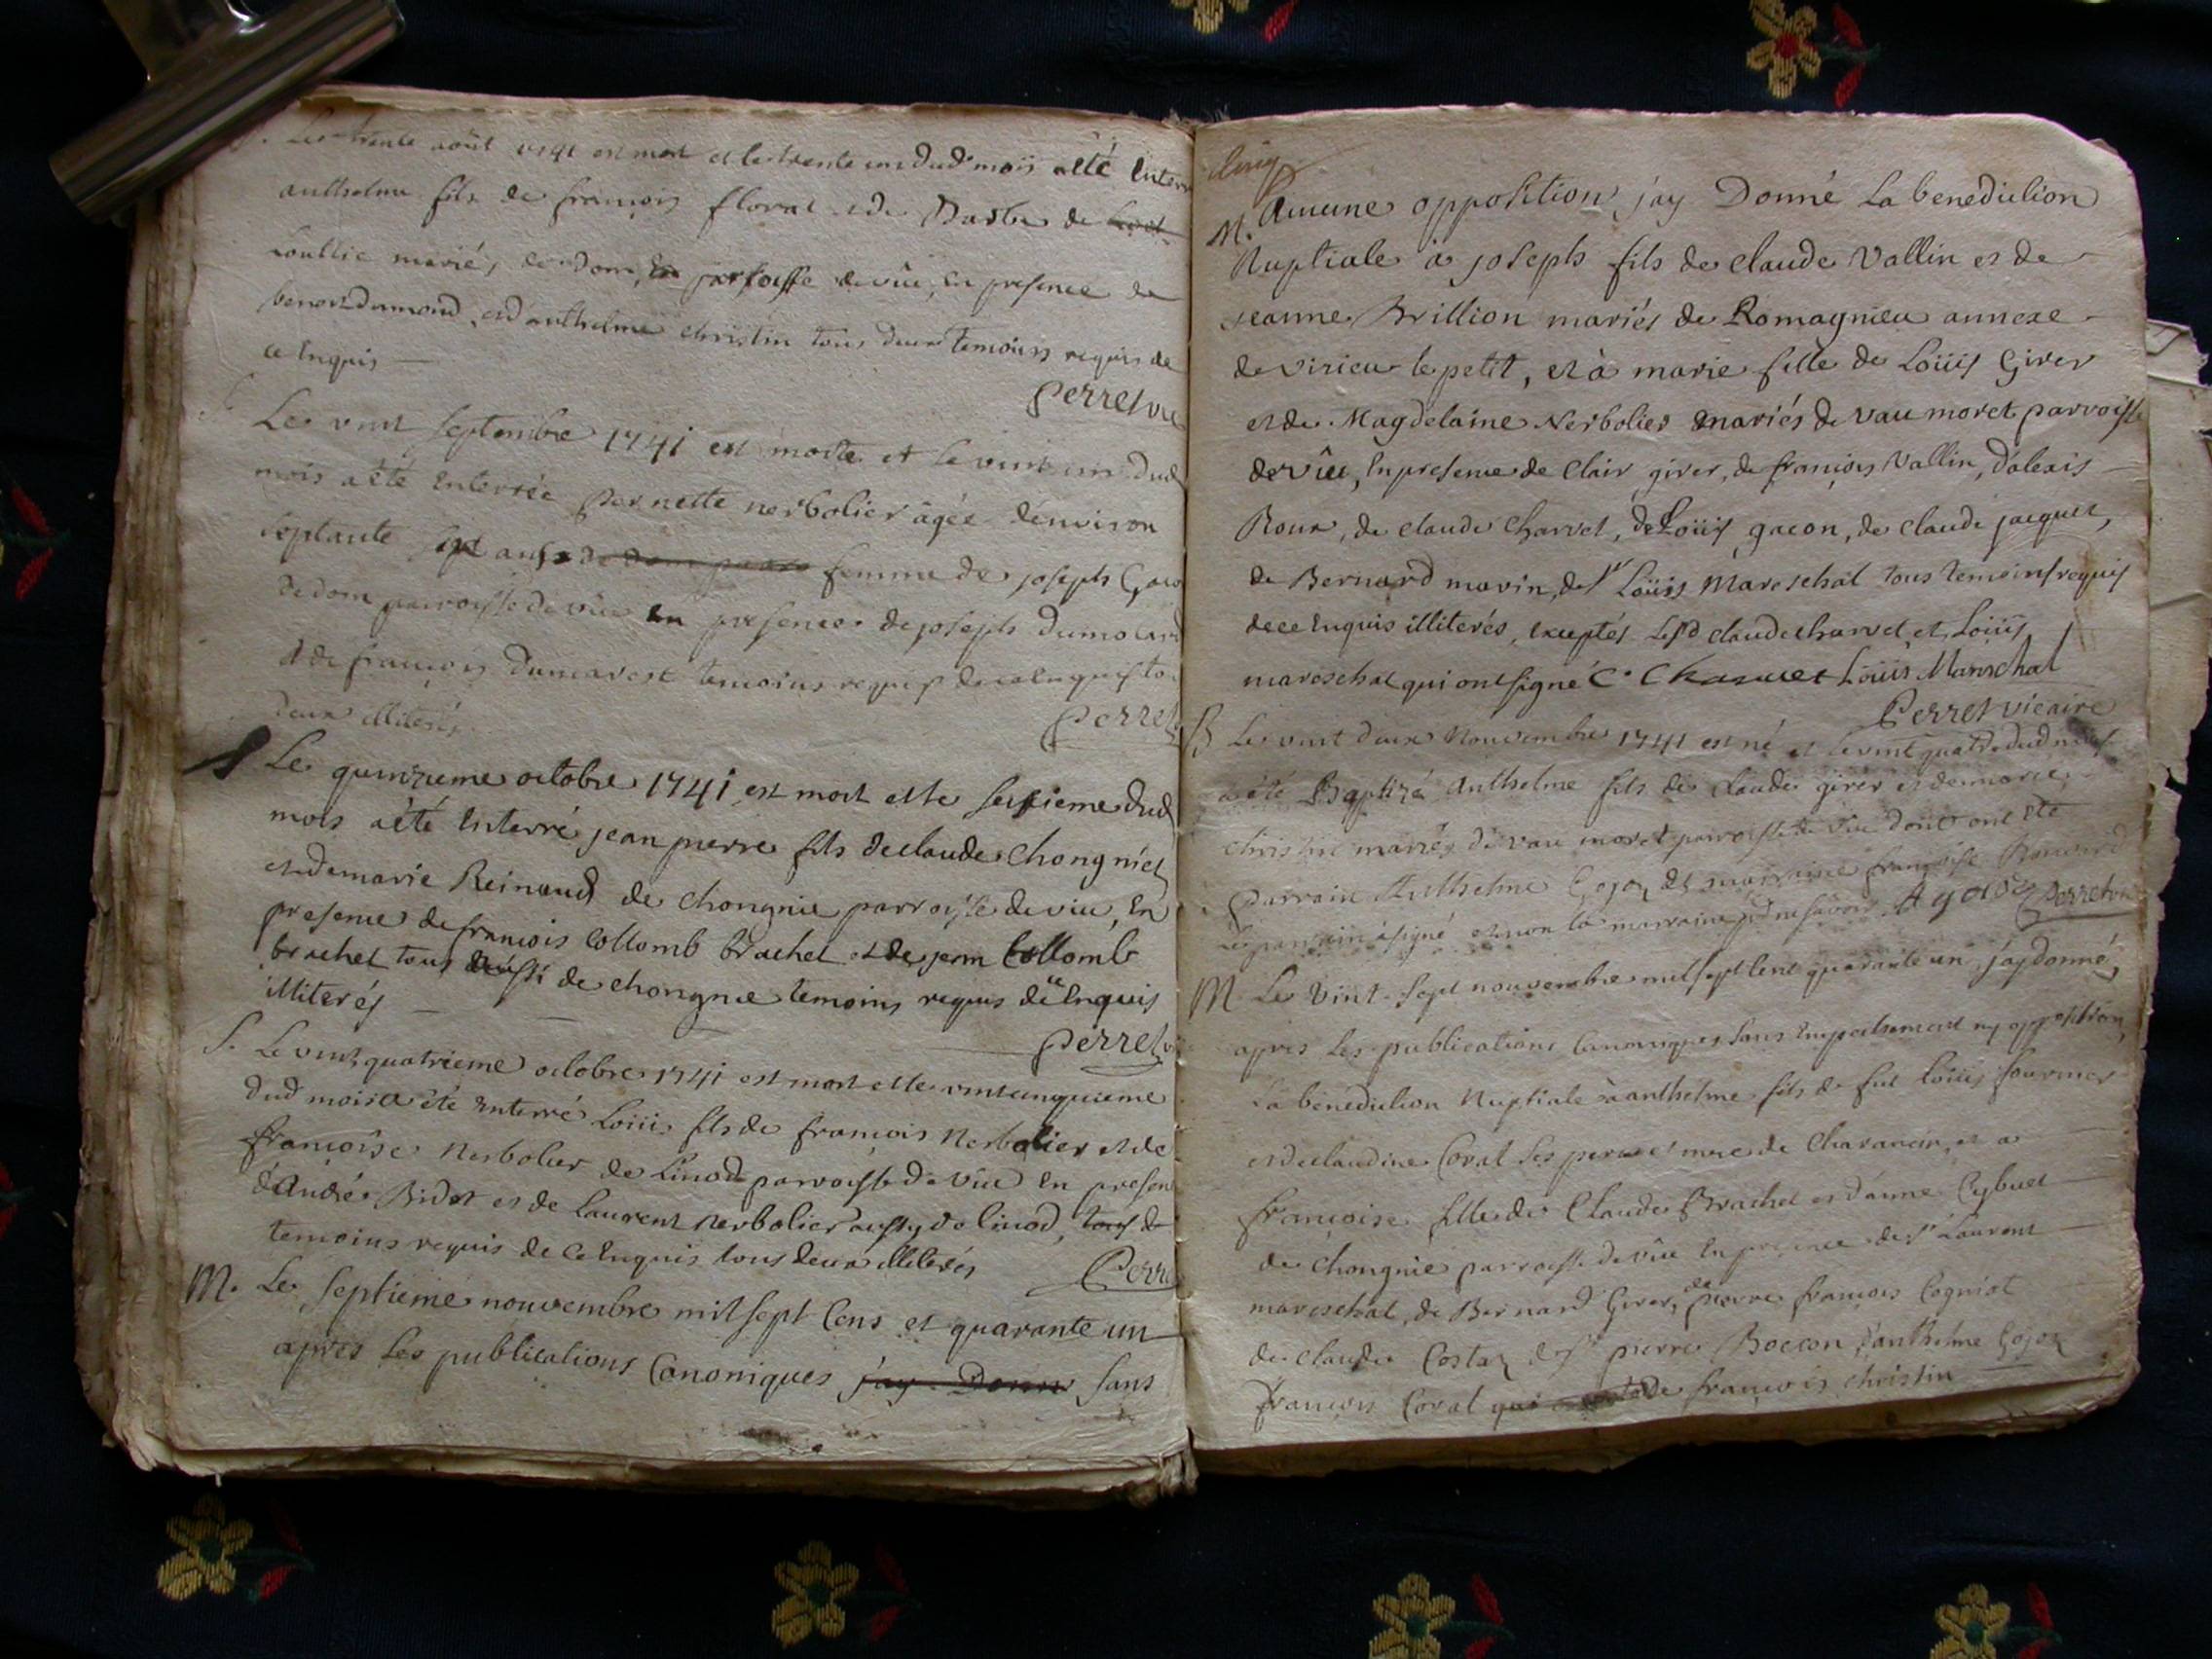 S. Le trente août 1741 est mort et le trente un dud' mois a été Enterré
anthelme fils de françois floral et de de
mariés de dom, parroisse de vîu, en presence de
benoit dumond, et d'anthelme christin tous deux temoins requis de
ce Enquis
Perret vic
S. Le vint septembre 1741 est morte et le vint un dud
mois a été Enterrée pernette nerbolier âgée denviron
septante sept ans femme de joseph
de dom parroisse de vîu en presence de joseph dumolard
et de françois dumarest temoins requis de ce Enquis
deux illiterés
Perret
S Le quinzieme octobre 1741 est mort et le seizieme dud
mois a été Enterré jean pierre fils de claude Chongniet
et de marie Reinaud de chongnie parroisse de viu, En
presence de françois Collomb brachet et de jean Collomb
brachet tous aussi de chongnie temoins requis de ce Enquis
illiterés
Perret
S. Le vint quatrieme octobre 1741 est mort et le vint cinquieme
dud mois a été Enterré Loüis fils de françois Nerbolier et de
françoise Nerbolier de Linod parroisse de Vîu En presen
d'André Bidot et de Laurent Nerbolier aussy de linod, tous de
temoins requis de ce Enquis tous deux illiterés
Perre
M. Le septieme nouvembre mil sept Cens et quarante un
après les publications Canoniques j'ay Donné sans
cinq
M. Aucune opposition j'ay Donné La benediction
Nuptiale à joseph fils de claude Vallin et de
jeanne Brillion mariés de Romagnieu annexe
de virieu le petit, et à marie fille de Loüis Girer
et de Magdelaine Nerbolier mariés de vau moret parroisse
de vîu, En presence de Clair girer, de françois Vallin, d'alexis
Roux, de claude Charvet, de Loüis gacon, de claude jacquet,
de Bernard marin, de sr Loüis Mareschal tous temoins requis
de ce Enquis illiterés, exceptés Lesd claude charvet et Loüis
mareschal qui ont signé C. Charvet Loüis Mareschal
Perret vicaire
B Le vint deux Nouvembre 1741 est né et le vint quatre dud mois
a été Baptizé Anthelme fils de claude girer et de marie
christin mariés de vau moret parroisse de Viu dont ont été
parrain Anthelme Gojoz et marraine françoise
Le parrain a signé et non la marraine pr ne savoir. A gojoz Perret vic
M Le Vint-sept nouvembre mil sept Cent quarante un j'ay donné,
apres les publications Canoniques sans Empechement ny opposition,
La benediction Nuptiale à anthelme fils de feu Loüis fournier
et de claudine Coral ses pere et mere de Charancin, et a
françoise fille de Claude Brachet et d'anne Cybuet
de chongnie parroisse de vîu En presence de sr Laurent
mareschal, de Bernard Girer, de pierre françois Cogniat
de claude Costaz de sr pierre Boccon d'anthelme Gojoz
françois Coral qui et de françois christin